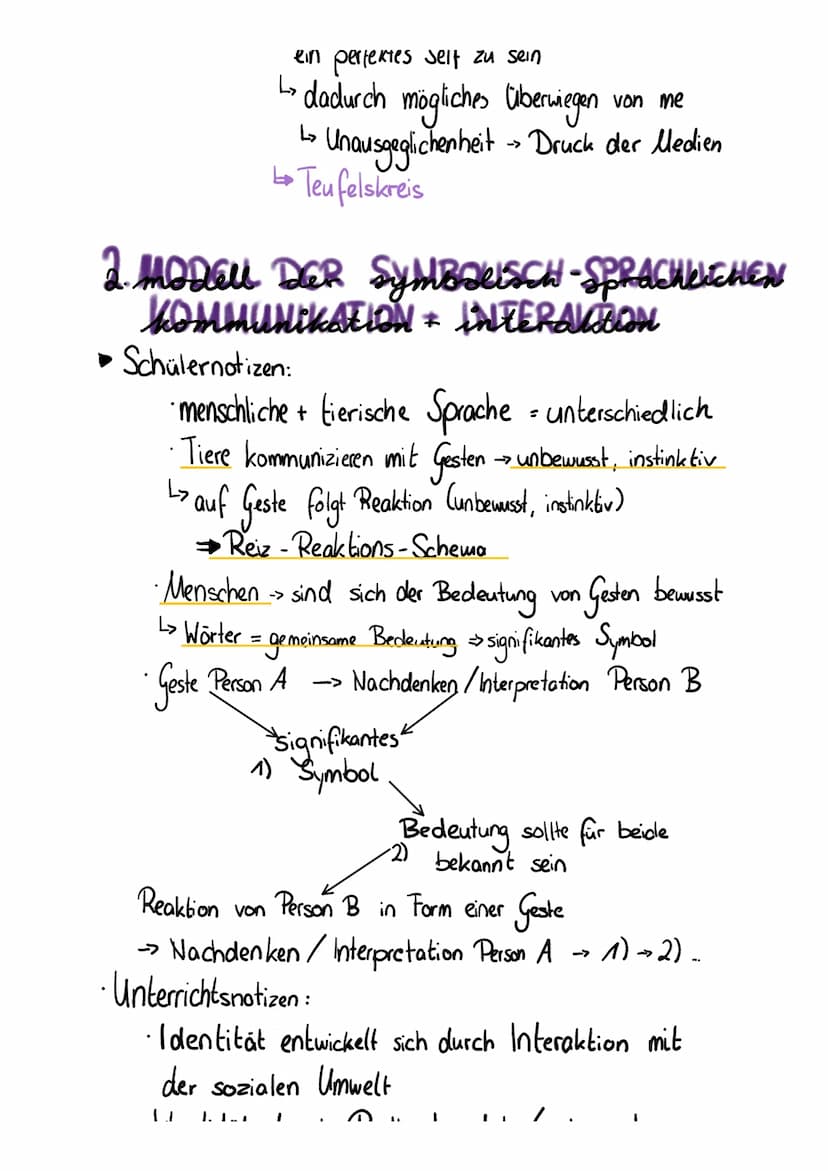 ein perfektes self zu sein
↳ dadurch mögliches Überwiegen von me
↳ Unausgeglichenheit → Druck der Medien
↳ Teufelskreis
2. MODELL DER SYMBOLISCH-SPRACHLICHEN
KOMMUNIKATION + INTERAKTION
▸ Schülernotizen:
· menschliche + tierische Sprache = unterschiedlich
· Tiere kommunizieren mit Gesten → unbewusst, instinktiv
↳ auf Geste folgt Reaktion (unbewusst, instinktiv)
⇒ Reiz-Reaktions-Schema
· Menschen → sind sich der Bedeutung von Gesten bewusst
↳ Wörter = gemeinsame Bedeutung ⇒ signifikantes Symbol
· Geste Person A → Nachdenken/Interpretation Person B
signifikantes
1) Symbol
Bedeutung sollte für beide
2) bekannt sein
Reaktion von Person B in Form einer Geste
→ Nachdenken/Interpretation Person A → 1) → 2) ..
· Unterrichtsnotizen:
· Identität entwickelt sich durch Interaktion mit
der sozialen Umwelt